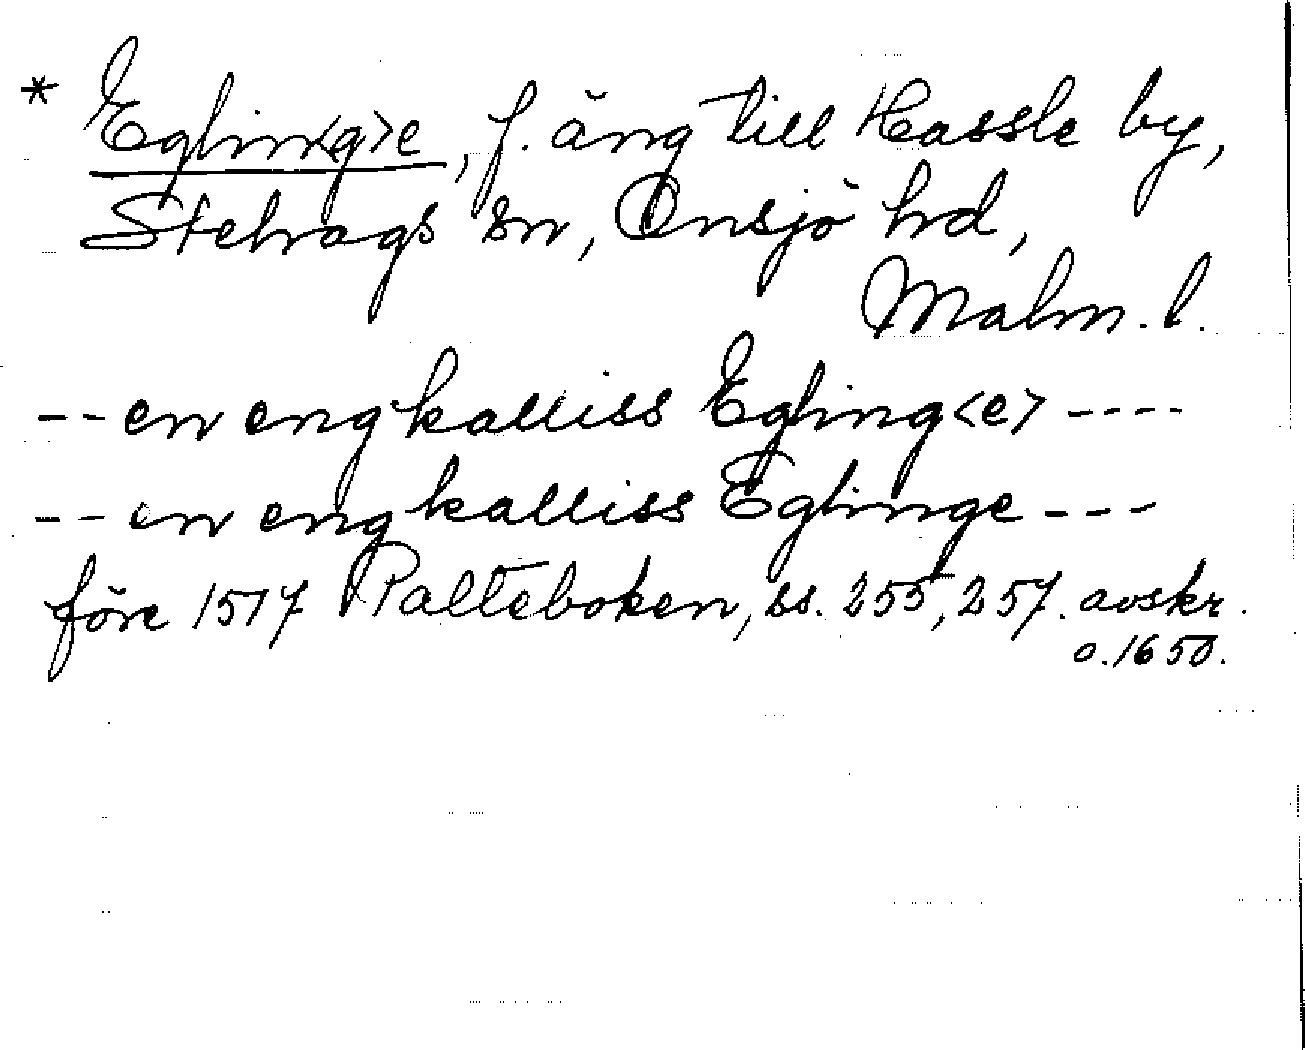 * Eglin<g>e, f. äng till Hassle by,
Stehags sn, Onsjö hd,
Malm. l.
-- en eng kalliss Egling<e> ----
-- en eng kalliss Eglinge ---
före 1517 Palteboken, ss. 255, 257. avskr.
o. 1650.